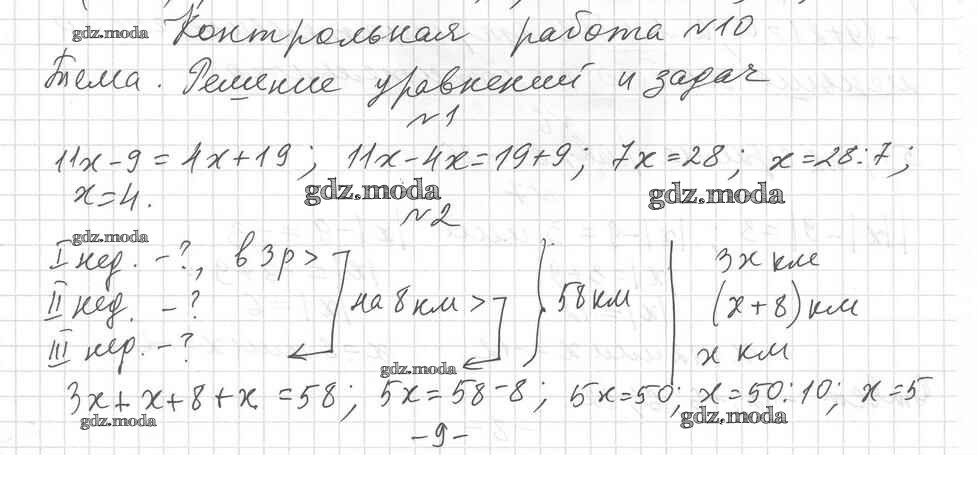 gdz.moda Контрольная работа №10
Тема. Решение уравнений и задач
№1
11x-9=4x+19; 11x-4x=19+9; 7x=28; x=28:7;
x=4. gdz.moda gdz.moda
№2
gdz.moda
I нед. -?, в 3 р > 3x км
II нед. -? на 8 км > 58 км (x+8) км
III нед. -? x км
gdz.moda
3x+x+8+x=58; 5x=58-8; 5x=50; x=50:10; x=5
gdz.moda gdz.moda
-9-